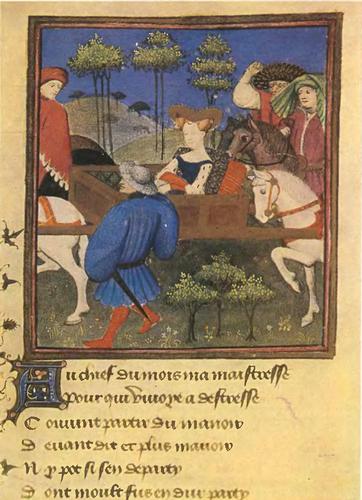 Au chief du mois ma maistresse
Pour qui viuoye a destresse
Couuint partir du manoir
Deuant dit et plus manoir
Ny pot si sen departy
Dont moult fus en dur party